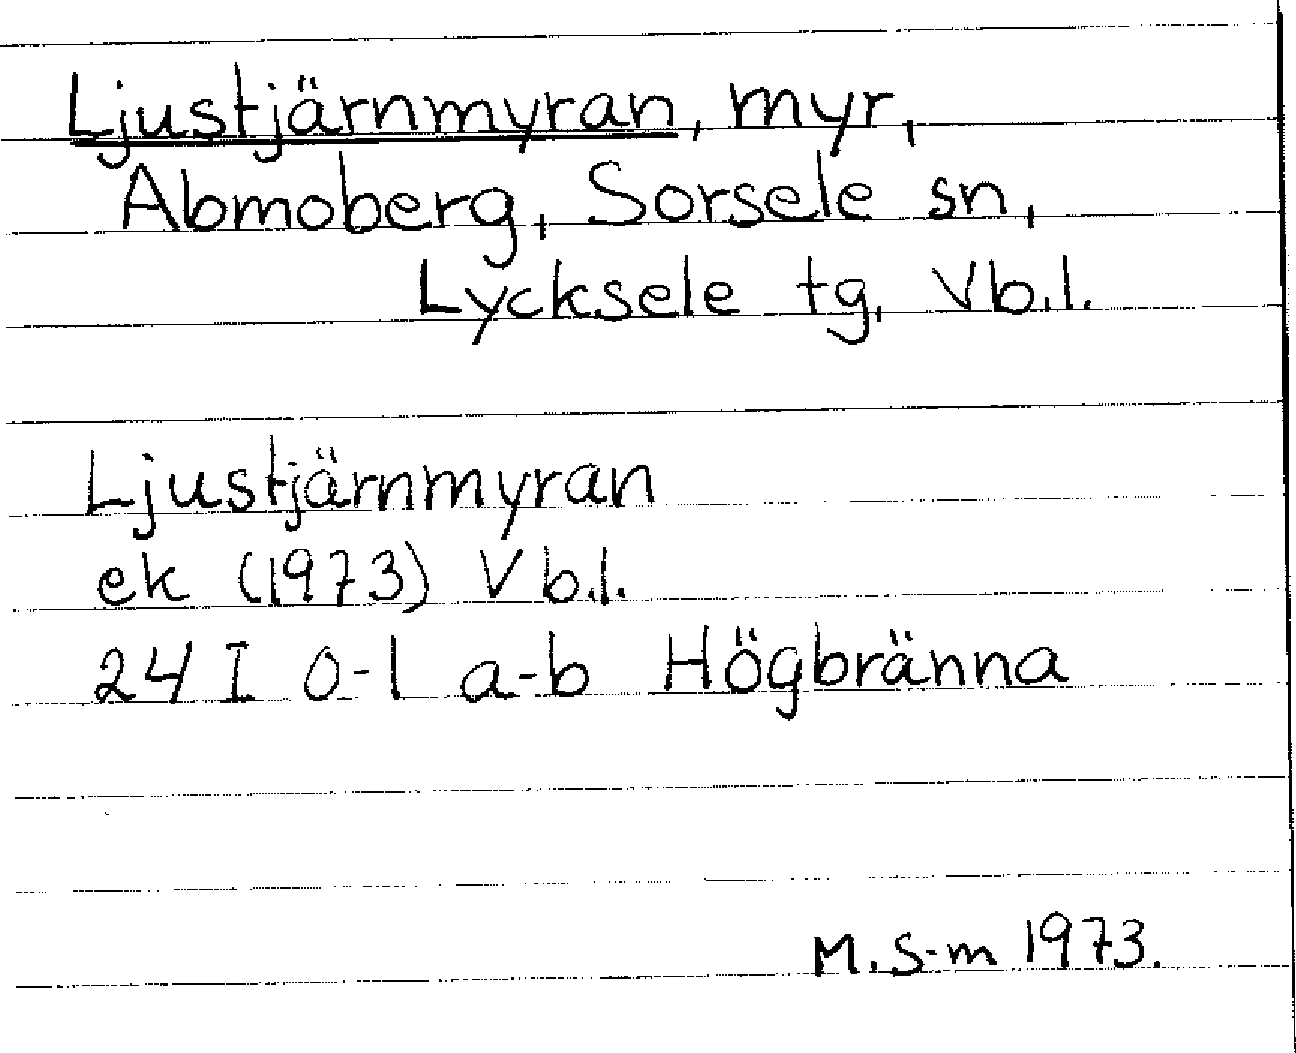 Ljustjärnmyran, myr,
Abmoberg, Sorsele sn,
Lycksele tg, Vb.l.
Ljustjärnmyran
ek (1973) Vb.l.
24 I 0-1 a-b Högbränna
M.S-m 1973.